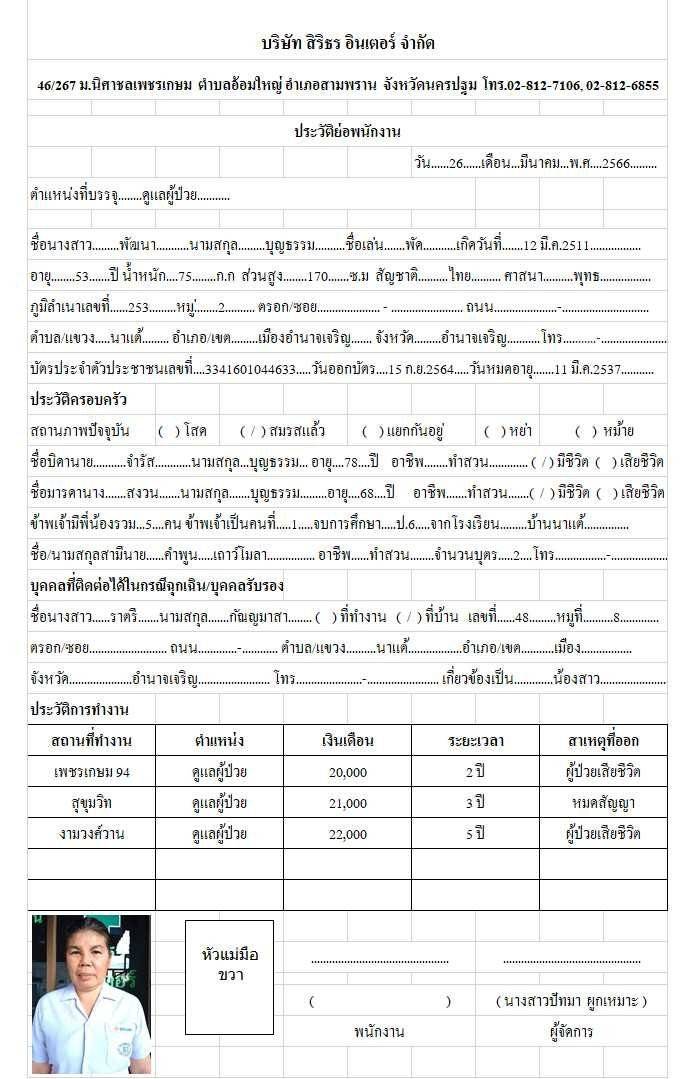 บริษัท สิริธร อินเตอร์ จำกัด
46/267 ม.นิศาชลเพชรเกษม ตำบลอ้อมใหญ่ อำเภอสามพราน จังหวัดนครปฐม โทร.02-812-7106, 02-812-6855
ประวัติย่อพนักงาน
วัน......26......เดือน...มีนาคม...พ.ศ....2566.........
ตำแหน่งที่บรรจุ........ดูแลผู้ป่วย...........
ชื่อนางสาว.........พัฒนา...........นามสกุล.........บุญธรรม..........ชื่อเล่น.......พัด...........เกิดวันที่.......12 มี.ค.2511.................
อายุ........53.......ปี น้ำหนัก....75........ก.ก ส่วนสูง........170.......ซ.ม สัญชาติ..........ไทย.......... ศาสนา..........พุทธ.................
ภูมิลำเนาเลขที่......253.........หมู่........2.......... ตรอก/ซอย..................... - ........................ ถนน.....................-.............................
ตำบล/แขวง.....นาแต้......... อำเภอ/เขต.........เมืองอำนาจเจริญ....... จังหวัด.........อำนาจเจริญ...........โทร...........-......................
บัตรประจำตัวประชาชนเลขที่....3341601044633.....วันออกบัตร....15 ก.ย.2564.....วันหมดอายุ.......11 มี.ค.2537...........
ประวัติครอบครัว
สถานภาพปัจจุบัน ( ) โสด ( / ) สมรสแล้ว ( ) แยกกันอยู่ ( ) หย่า ( ) หม้าย
ชื่อบิดานาย...........จำรัส............นามสกุล...บุญธรรม... อายุ....78....ปี อาชีพ........ทำสวน............. ( / ) มีชีวิต ( ) เสียชีวิต
ชื่อมารดานาง.......สงวน.......นามสกุล.......บุญธรรม.........อายุ....68....ปี อาชีพ.......ทำสวน.......( / ) มีชีวิต ( ) เสียชีวิต
ข้าพเจ้ามีพี่น้องรวม...5....คน ข้าพเจ้าเป็นคนที่.....1.....จบการศึกษา.....ป.6.....จากโรงเรียน.........บ้านนาแต้...............
ชื่อ/นามสกุลสามีนาย......คำพูน.....เถาว์โมลา................ อาชีพ......ทำสวน........จำนวนบุตร.....2....โทร.................-...................
บุคคลที่ติดต่อได้ในกรณีฉุกเฉิน/บุคคลรับรอง
ชื่อนางสาว......ราตรี.......นามสกุล.......กัณญมาสา........ ( ) ที่ทำงาน ( / ) ที่บ้าน เลขที่......48.........หมู่ที่..........8.............
ตรอก/ซอย.......................... ถนน.............-............ ตำบล/แขวง..........นาแต้..................อำเภอ/เขต...........เมือง.................
จังหวัด.....................อำนาจเจริญ........................ โทร......................-........................ เกี่ยวข้องเป็น............น้องสาว......................
ประวัติการทำงาน
สถานที่ทำงาน ตำแหน่ง เงินเดือน ระยะเวลา สาเหตุที่ออก
เพชรเกษม 94 ดูแลผู้ป่วย 20,000 2 ปี ผู้ป่วยเสียชีวิต
สุขุมวิท ดูแลผู้ป่วย 21,000 3 ปี หมดสัญญา
งามวงศ์วาน ดูแลผู้ป่วย 22,000 5 ปี ผู้ป่วยเสียชีวิต
หัวแม่มือ
ขวา
( ) ( นางสาวปัทมา ผูกเหมาะ )
พนักงาน ผู้จัดการ